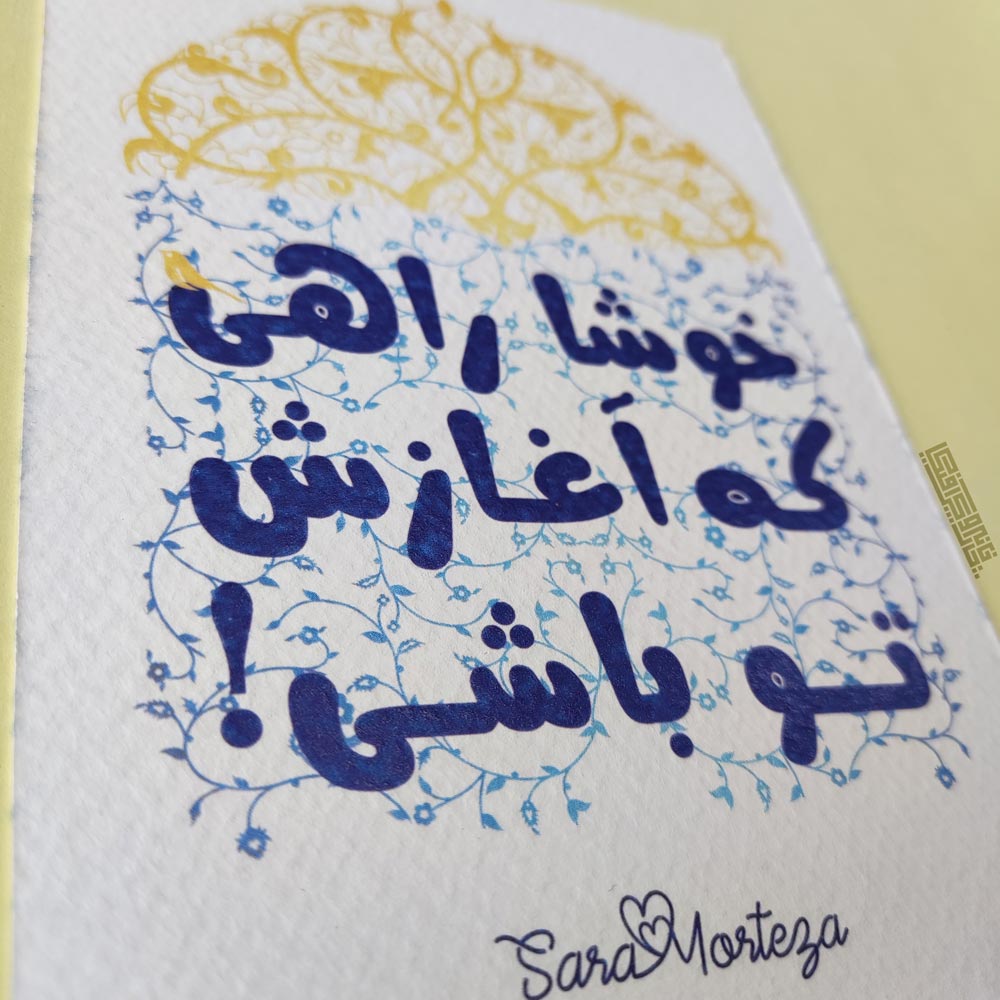 خوشا راهی
که آغازش
تو باشی!
Sara Morteza